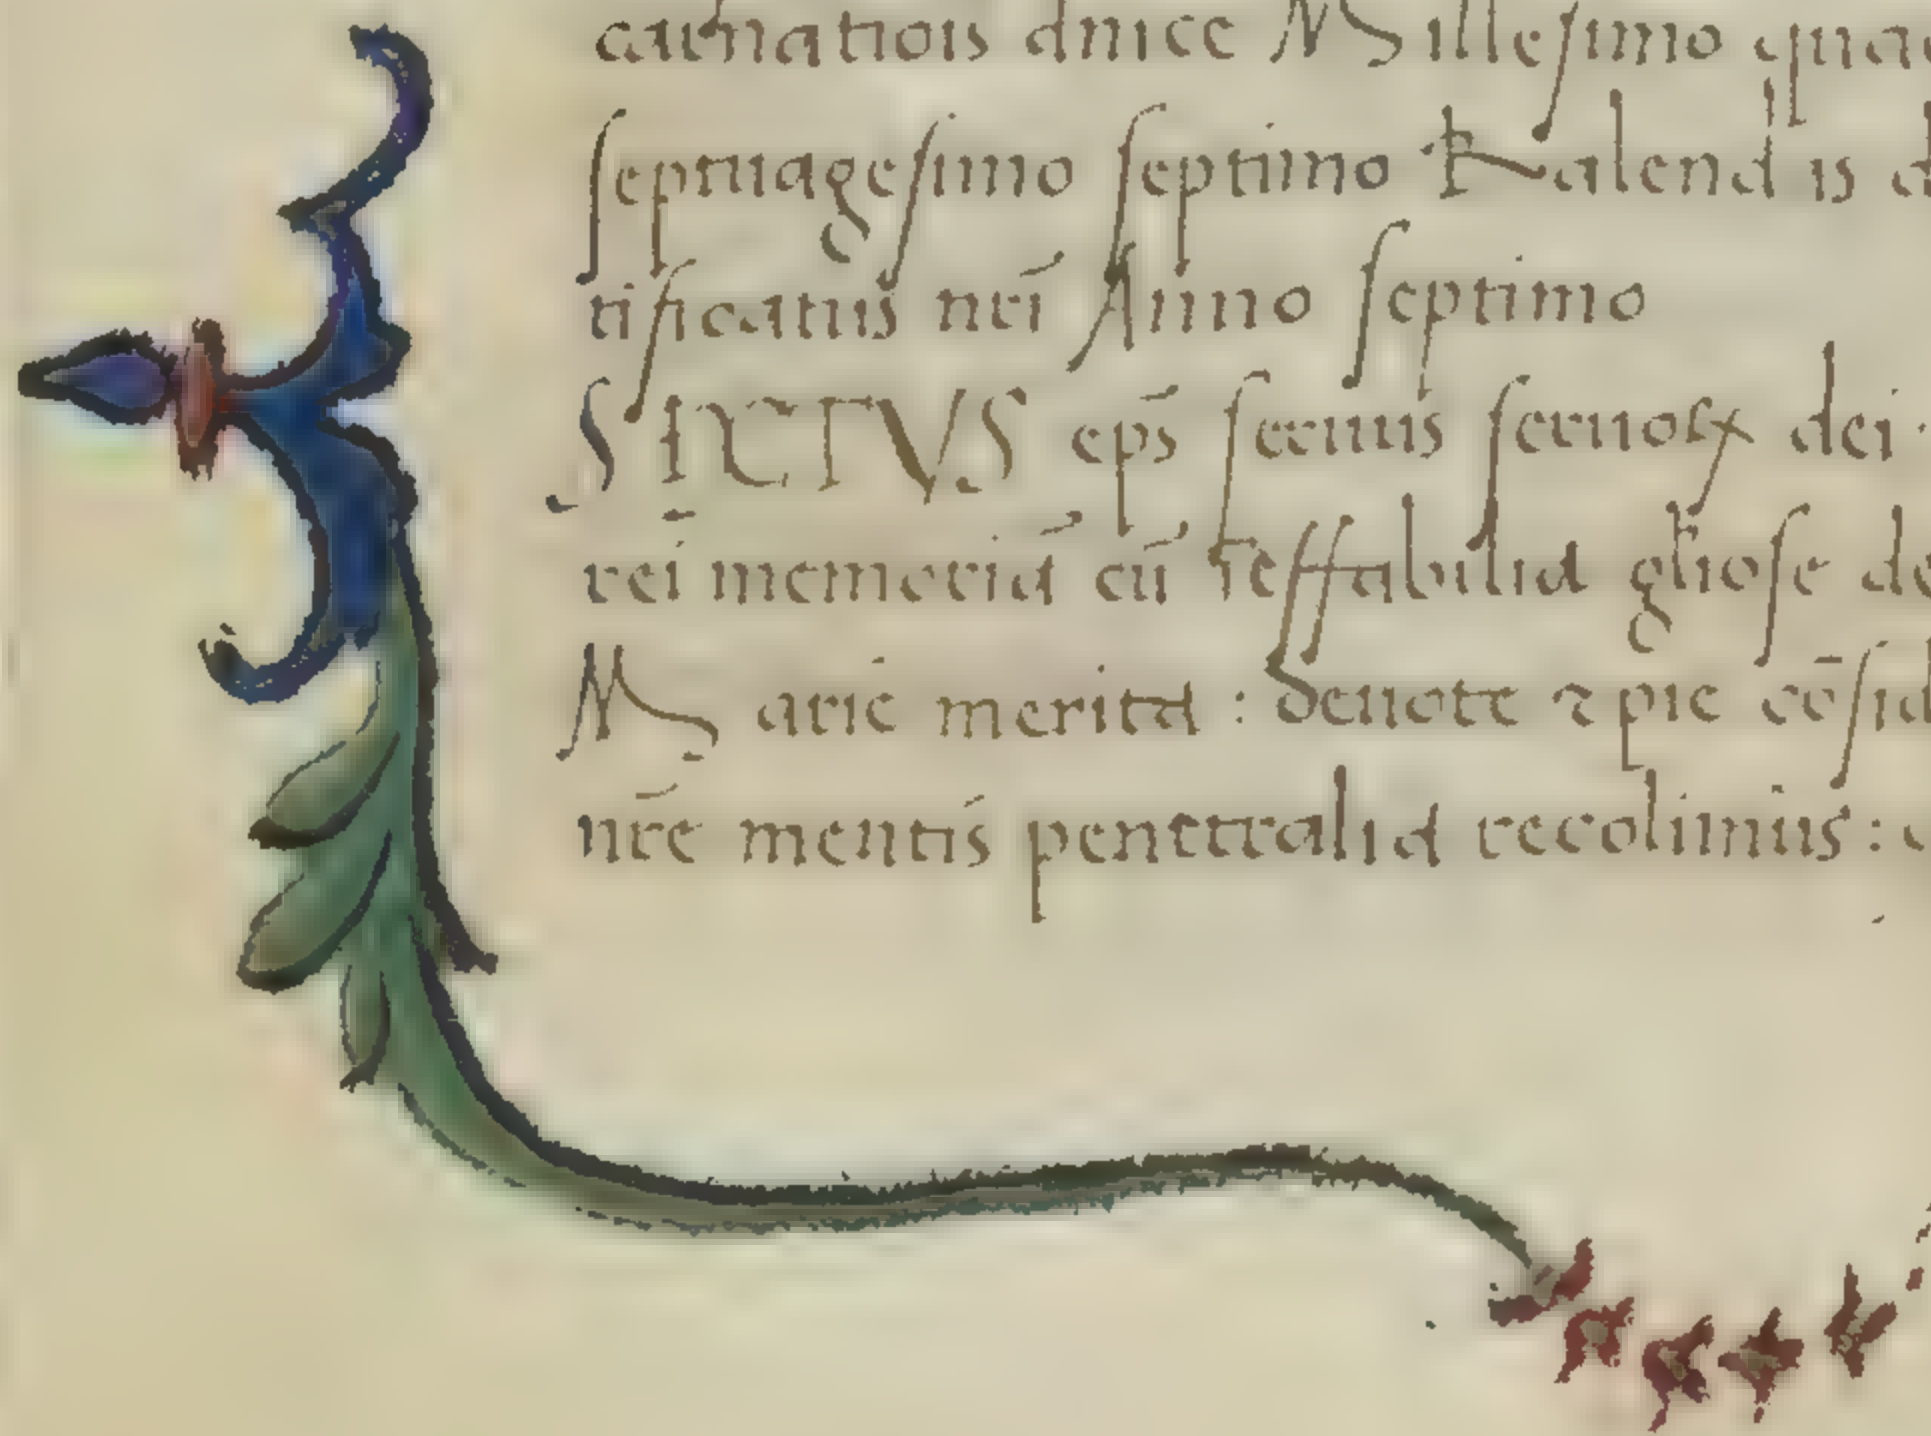 carnatiois dnice Millesimo qua
septuagesimo septimo Kalendis d
tificatus nri Anno septimo
SICTVS eps seruus seruoꝝ dei ·
rei memoriā cū ieffabilia gliose de
Marie merita : deuote ⁊ pie cōsid
nre mentis penetralia recolimus :